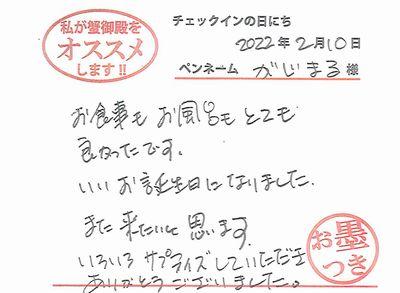 私が蟹御殿を
オススメ
します!!
チェックインの日にち
2022年2月10日
ペンネーム がじまる 様
お食事も お風呂も とても
良かったです。
いい お誕生日になりました.
また 来たいと 思います.
いろいろ サプライズしていただき
ありがとうございました。
お墨
つき